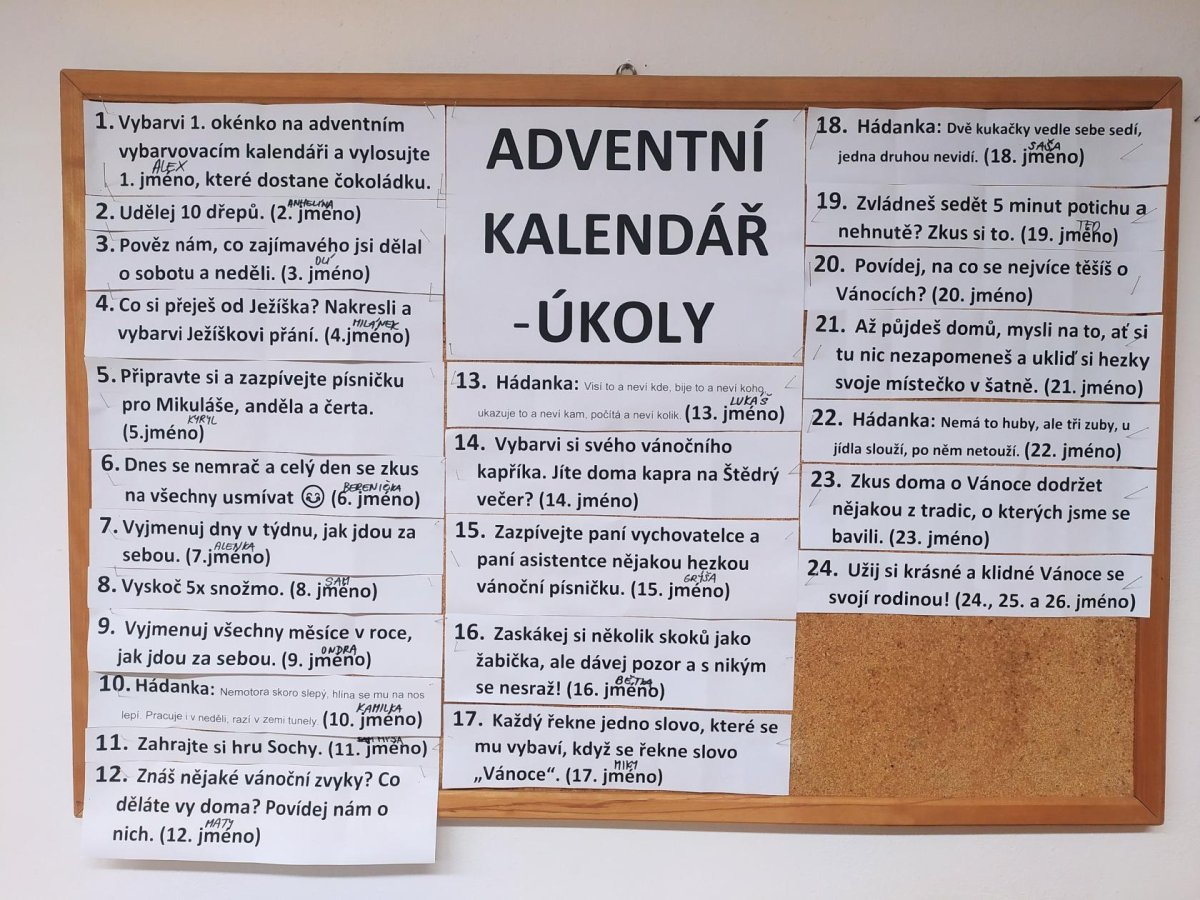 1. Vybarvi 1. okénko na adventním
vybarvovacím kalendáři a vylosujte
ALEX
1. jméno, které dostane čokoládku.
ANHELINA
2. Udělej 10 dřepů. (2. jméno)
3. Pověz nám, co zajímavého jsi dělal
o sobotu a neděli. (3. jméno)
4. Co si přeješ od Ježíška? Nakresli a
MILÁNEK
vybarvi Ježíškovi přání. (4.jméno)
5. Připravte si a zazpívejte písničku
pro Mikuláše, anděla a čerta.
KYRYL
(5.jméno)
6. Dnes se nemrač a celý den se zkus
BERENIČKA
na všechny usmívat 😊 (6. jméno)
7. Vyjmenuj dny v týdnu, jak jdou za
ALENKA
sebou. (7.jméno)
SAM
8. Vyskoč 5x snožmo. (8. jméno)
9. Vyjmenuj všechny měsíce v roce,
ONDRA
jak jdou za sebou. (9. jméno)
10. Hádanka: Nemotora skoro slepý, hlína se mu na nos
KAMILKA
lepí. Pracuje i v neděli, razí v zemi tunely. (10. jméno)
MÍŠA
11. Zahrajte si hru Sochy. (11. jméno)
12. Znáš nějaké vánoční zvyky? Co
děláte vy doma? Povídej nám o
MATY
nich. (12. jméno)
ADVENTNÍ
KALENDÁŘ
-ÚKOLY
13. Hádanka: Visí to a neví kde, bije to a neví koho,
LUKÁŠ
ukazuje to a neví kam, počítá a neví kolik. (13. jméno)
14. Vybarvi si svého vánočního
kapříka. Jíte doma kapra na Štědrý
večer? (14. jméno)
15. Zazpívejte paní vychovatelce a
paní asistentce nějakou hezkou
GRÝŠA
vánoční písničku. (15. jméno)
16. Zaskákej si několik skoků jako
žabička, ale dávej pozor a s nikým
BĚTKA
se nesraž! (16. jméno)
17. Každý řekne jedno slovo, které se
mu vybaví, když se řekne slovo
MIKY
„Vánoce“. (17. jméno)
18. Hádanka: Dvě kukačky vedle sebe sedí,
SAŠA
jedna druhou nevidí. (18. jméno)
19. Zvládneš sedět 5 minut potichu a
TED
nehnutě? Zkus si to. (19. jméno)
20. Povídej, na co se nejvíce těšíš o
Vánocích? (20. jméno)
21. Až půjdeš domů, mysli na to, ať si
tu nic nezapomeneš a ukliď si hezky
svoje místečko v šatně. (21. jméno)
22. Hádanka: Nemá to huby, ale tři zuby, u
jídla slouží, po něm netouží. (22. jméno)
23. Zkus doma o Vánoce dodržet
nějakou z tradic, o kterých jsme se
bavili. (23. jméno)
24. Užij si krásné a klidné Vánoce se
svojí rodinou! (24., 25. a 26. jméno)